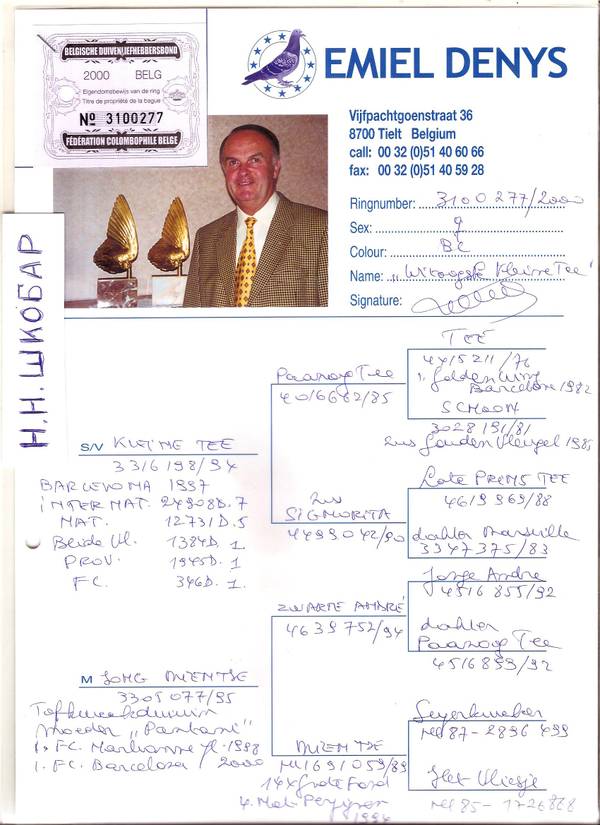 BELGISCHE DUIVENLIEFHEBBERSBOND
2000 BELG
Eigendomsbewijs van de ring
Titre de propriété de la bague
Nº 3100277
FÉDÉRATION COLOMBOPHILE BELGE
EMIEL DENYS
Vijfpachtgoenstraat 36
8700 Tielt Belgium
call: 00 32 (0)51 40 60 66
fax: 00 32 (0)51 40 59 28
Ringnumber: 3100277/2000
Sex:
Colour: BC
Name: „Witoogste Kleine Tee"
Signature:
Н.Н. ШКОБАР
TEE
4415211/76
1. Golden Wing
Barcelona 1982
Paaroog Tee
4016662/85
SCHOON
3028191/81
zus Gouden Vleugel 1985
S/V KLEINE TEE
3316198/94
BARCELONA 1997
INTERNAT. 24908D. 7
NAT. 12731D. 5
Beide Vl. 1384D. 1
PROV. 1945D. 1
F.C. 346D. 1
Late PRINS TEE
4619969/88
zus
SIGNORITA
4499042/90
dochter Marseille
3347375/83
Jonge André
4516855/92
ZWARTE ANDRÉ
4639752/94
dochter
Paaroog Tee
4516899/92
M JONG MIENTJE
3305077/95
Topkweekduivin
Moeder „Pantani"
1. FC. Narbonne jl. 1998
1. F.C. Barcelona / 2000
Seyerkweker
Nl 87-2896 499
MIENTJE
Nl 1691059/89
14x Grote Fond
4. Nat. Perpignan
1994
Het Vliesje
Nl 85-1726868